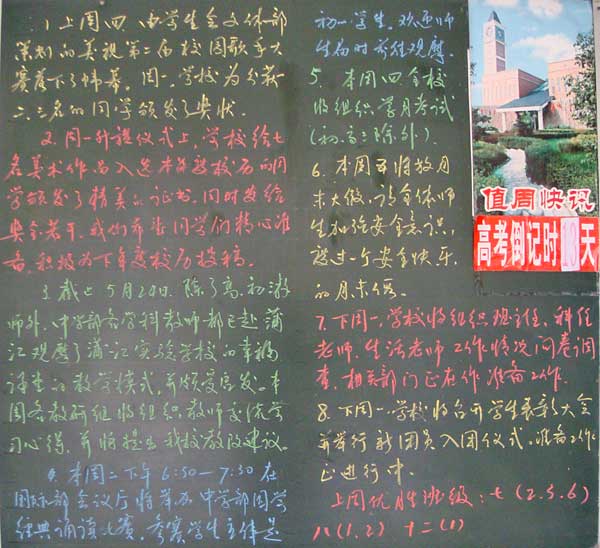 1. 上周四, 由学生会文体部
策划的美视第二届校园歌手大
赛落下了帷幕。周一, 学校为分获一
二、三名的同学颁发了奖状。
2. 周一升旗仪式上, 学校给七
名美术作品入选本年度校历的同
学颁发了精美的证书, 同时发给
奖金若干, 我们希望同学们精心准
备, 积极为下年度校历投稿。
3. 截止5月24日, 除了高、初
师外, 中学部各学科教师都已赴蒲
江观摩了蒲江实验学校的幸福
课堂的教学模式, 并颇受启发。本
周各教研组将组织教师交流学
习心得, 并将提出我校教改建议。
4. 本周二下午6:50—7:30在
国际部会议厅将举办中学部国学
经典诵读比赛, 参赛学生主体是
初一学生, 欢迎师
生届时前往观摩。
5. 本周四全校
将组织学月考试
(初、高三除外)。
6. 本周五将放月
末大假, 请全体师
生加强安全意识,
度过一个安全快乐
的月末假。
7. 下周一, 学校将组织班主任、科任
老师、生活老师工作情况问卷调
查, 相关部门正在作准备工作。
8. 下周一, 学校将召开学生表彰大会
并举行新团员入团仪式, 准备工作
正进行中。
上周优胜班级: 七(2.5.6)
八(1.2) 十二(1)
值周快讯
高考倒记时13天